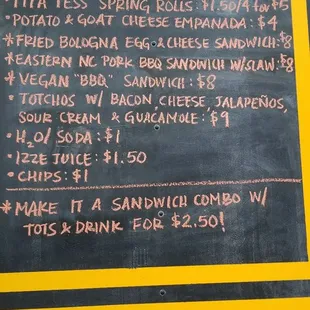 TITA TESS SPRING ROLLS: $1.50/4 for $5
• POTATO & GOAT CHEESE EMPANADA: $4
* FRIED BOLOGNA EGG & CHEESE SANDWICH: $8
* EASTERN NC PORK BBQ SANDWICH W/SLAW: $8
* VEGAN "BBQ" SANDWICH: $8
• TOTCHOS W/ BACON, CHEESE, JALAPEÑOS,
SOUR CREAM & GUACAMOLE: $9
• H₂O/ SODA: $1
• IZZE JUICE: $1.50
• CHIPS: $1
* MAKE IT A SANDWICH COMBO W/
TOTS & DRINK FOR $2.50!